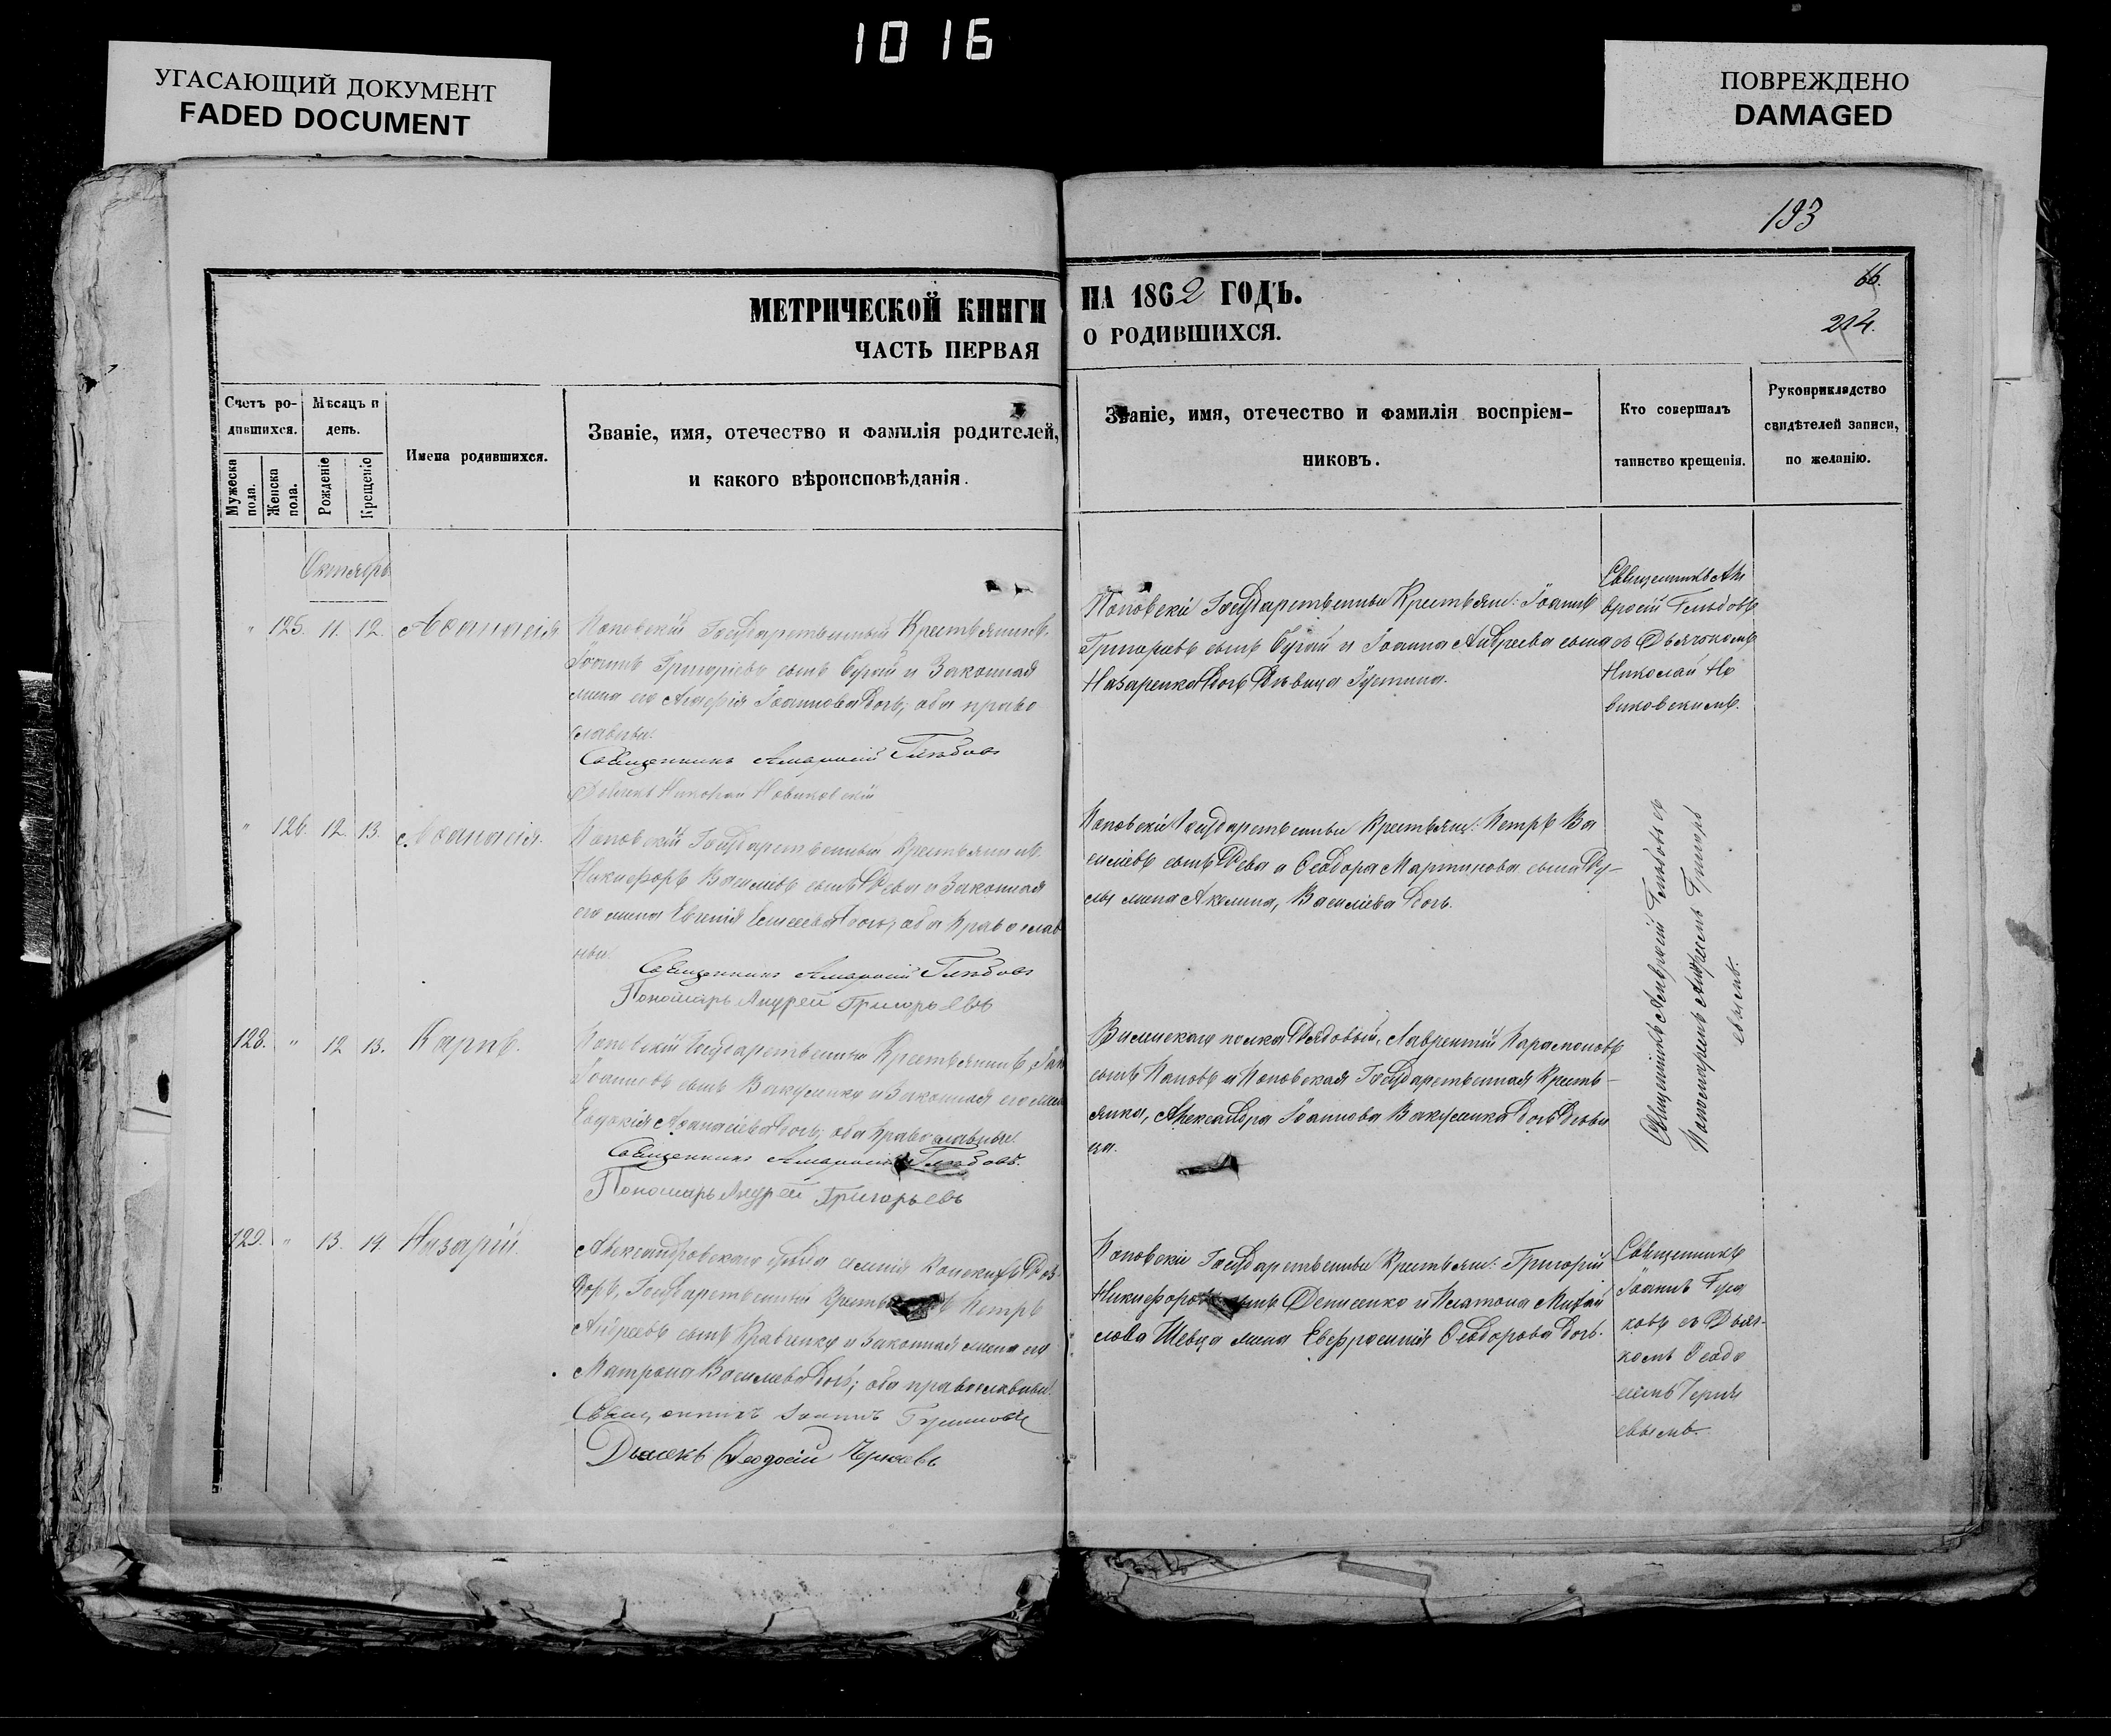 1016
УГАСАЮЩИЙ ДОКУМЕНТ
FADED DOCUMENT
ПОВРЕЖДЕНО
DAMAGED
193
66.
214.
МЕТРИЧЕСКОЙ КНИГИ НА 1862 ГОДЪ.
ЧАСТЬ ПЕРВАЯ О РОДИВШИХСЯ.
Счетъ ро-
дившихся.
Мужеска пола.
Женска пола.
Мѣсяцъ и
день.
Рожденіе
Крещеніе
Имена родившихся.
Званіе, имя, отечество и фамилія родителей,
и какого вѣроисповѣданія.
Званіе, имя, отечество и фамилія воспріем-
никовъ.
Кто совершалъ
таинство крещенія.
Рукоприкладство
свидѣтелей записи,
по желанію.
Октябрь
" 125. 11. 12. Аѳанасія
Поповскій Государственный Крестьянинъ
Іоаннъ Григорьевъ сынъ Бугай и Законная
жена его Іоаннова дочь; оба право
славные.
Священникъ Амвросій Глѣбовъ
Дьячекъ Николай Новиковскій
Поповскіе Государственные Крестьян: Іоаннъ
Григорьевъ сынъ Бугай и Іоанна Андреева сына
Назаренка дочь Дѣвица Іустина.
Священникъ Ам
вросій Глѣбовъ
съ Дьячкомъ
Николай Но
виковскимъ.
" 126. 12. 13. Аѳанасія.
Поповскій Государственный Крестьянинъ
Никифоръ Васильевъ сынъ и Законная
его жена Евгенія дочь; оба Православ
ны.
Священникъ Амвросій Глѣбовъ
Пономарь Андрей Григорьевъ
Поповскіе Государственные Крестьян: Петръ Ва
сильевъ сынъ и Ѳеодора Мартинова сына
жена Акилина, Васильева дочь.
Священникъ Амвросій Глѣбовъ съ
Пономаремъ Андреемъ Григорь
евымъ.
128. " 12 13. Карпъ.
Поповскій Государственный Крестьянинъ
Іоанновъ сынъ Вакуленко и Законная его жен
Евдокія Аѳанасіева дочь; оба Православные
Священникъ Амвросій Глѣбовъ.
Пономарь Андрей Григорьевъ
Виленскаго полка Рядовый, Лаврентій Парамоновъ
сынъ Поповъ и Поповская Государственная Кресть-
янка, Александра Іоаннова Вакуленка дочь Дѣви
ца.
129. " 13. 14. Назарій.
Александровскаго уѣзда
Государственный Петръ
Андреевъ сынъ Кравченко и Законная жена его
Матрона Васильева дочь; оба православные.
Священникъ Іоаннъ
Дьячекъ Ѳеодосій Черняевъ
Поповскіе Государственные Крестьян: Григорій
Никифоровъ сынъ Денисенко и Платона Михай
лова Шевца жена Евфросинія Ѳеодорова дочь.
Священникъ
Іоаннъ
съ Дьяч-
комъ Ѳеодо
сіемъ Черня
евымъ.